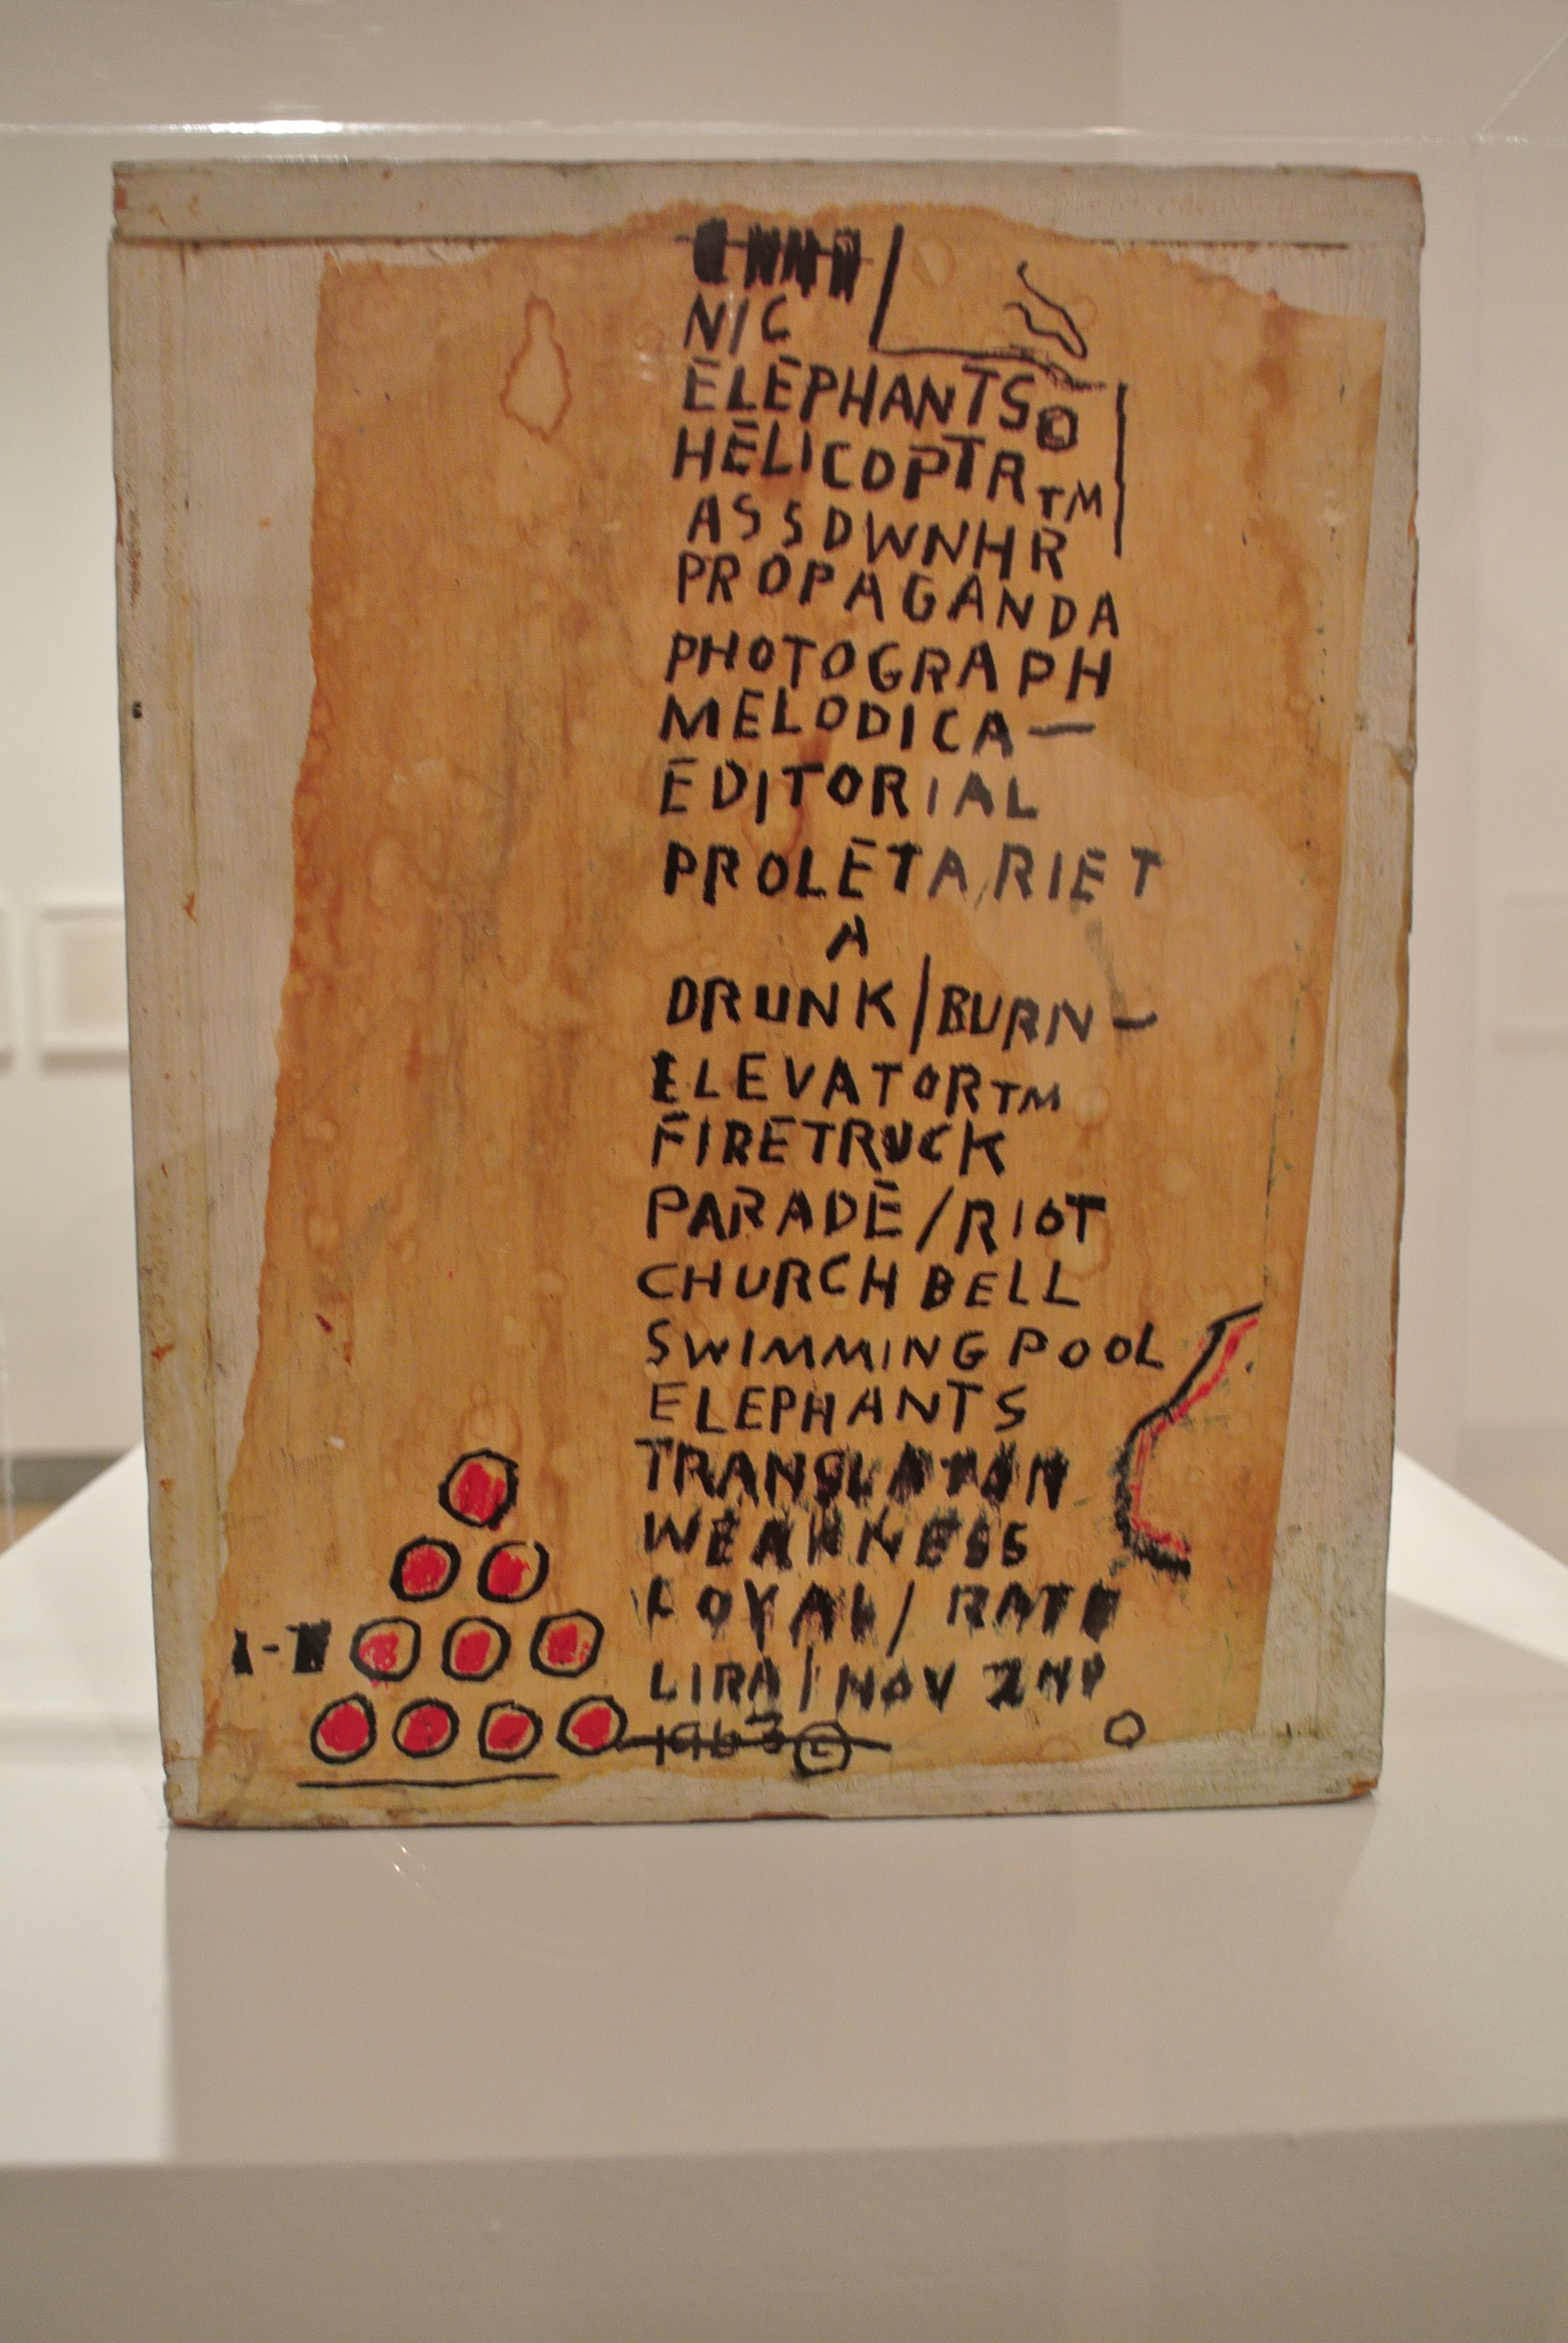 N/C
ELEPHANTS©
HELICOPTR™
ASSDWNHR
PROPAGANDA
PHOTOGRAPH
MELODICA—
EDITORIAL
PROLETARIET
A
DRUNK/BURN—
ELEVATOR™
FIRETRUCK
PARADE/RIOT
CHURCH BELL
SWIMMING POOL
ELEPHANTS
TRANSLATION
WEAKNESS
LOYAL/RATE
LIRA/NOV 2ND
1963©